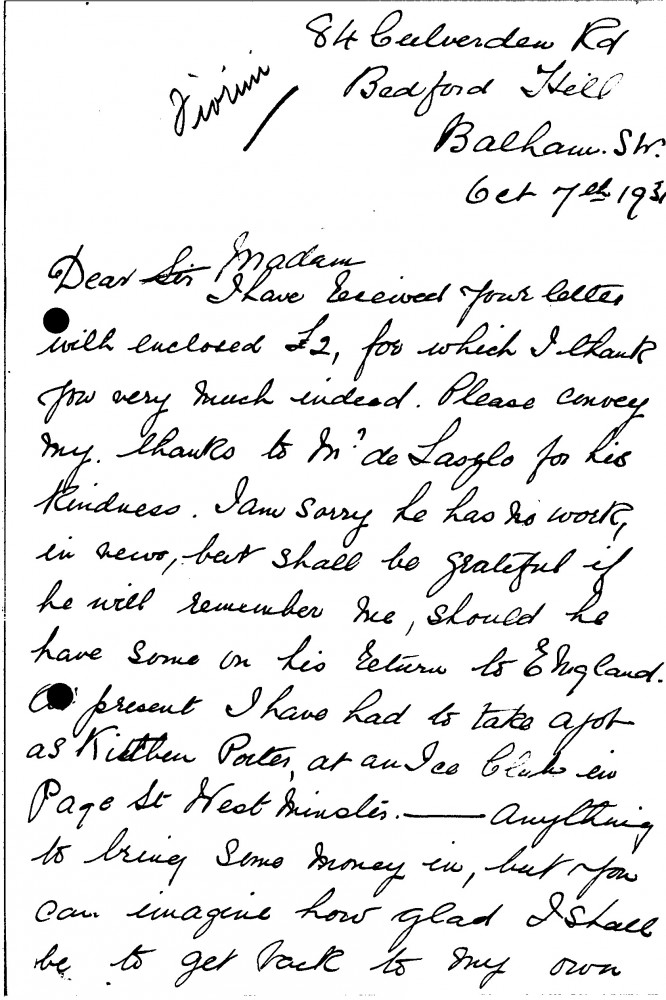 84 Culverden Rd
Fiorini
Bedford Hill
Balham. S.W.
Oct 7th 1931
Dear Sir Madam
I have received your letter
with enclosed £2, for which I thank
you very much indeed. Please convey
my thanks to Mr de Laszlo for his
kindness. I am sorry he has no work,
in view, but shall be grateful if
he will remember me, should he
have some on his return to England.
At present I have had to take a job
as Kitchen Porter, at an Ice Club in
Page St West Minster. — Anything
to bring some money in, but you
can imagine how glad I shall
be to get back to my own